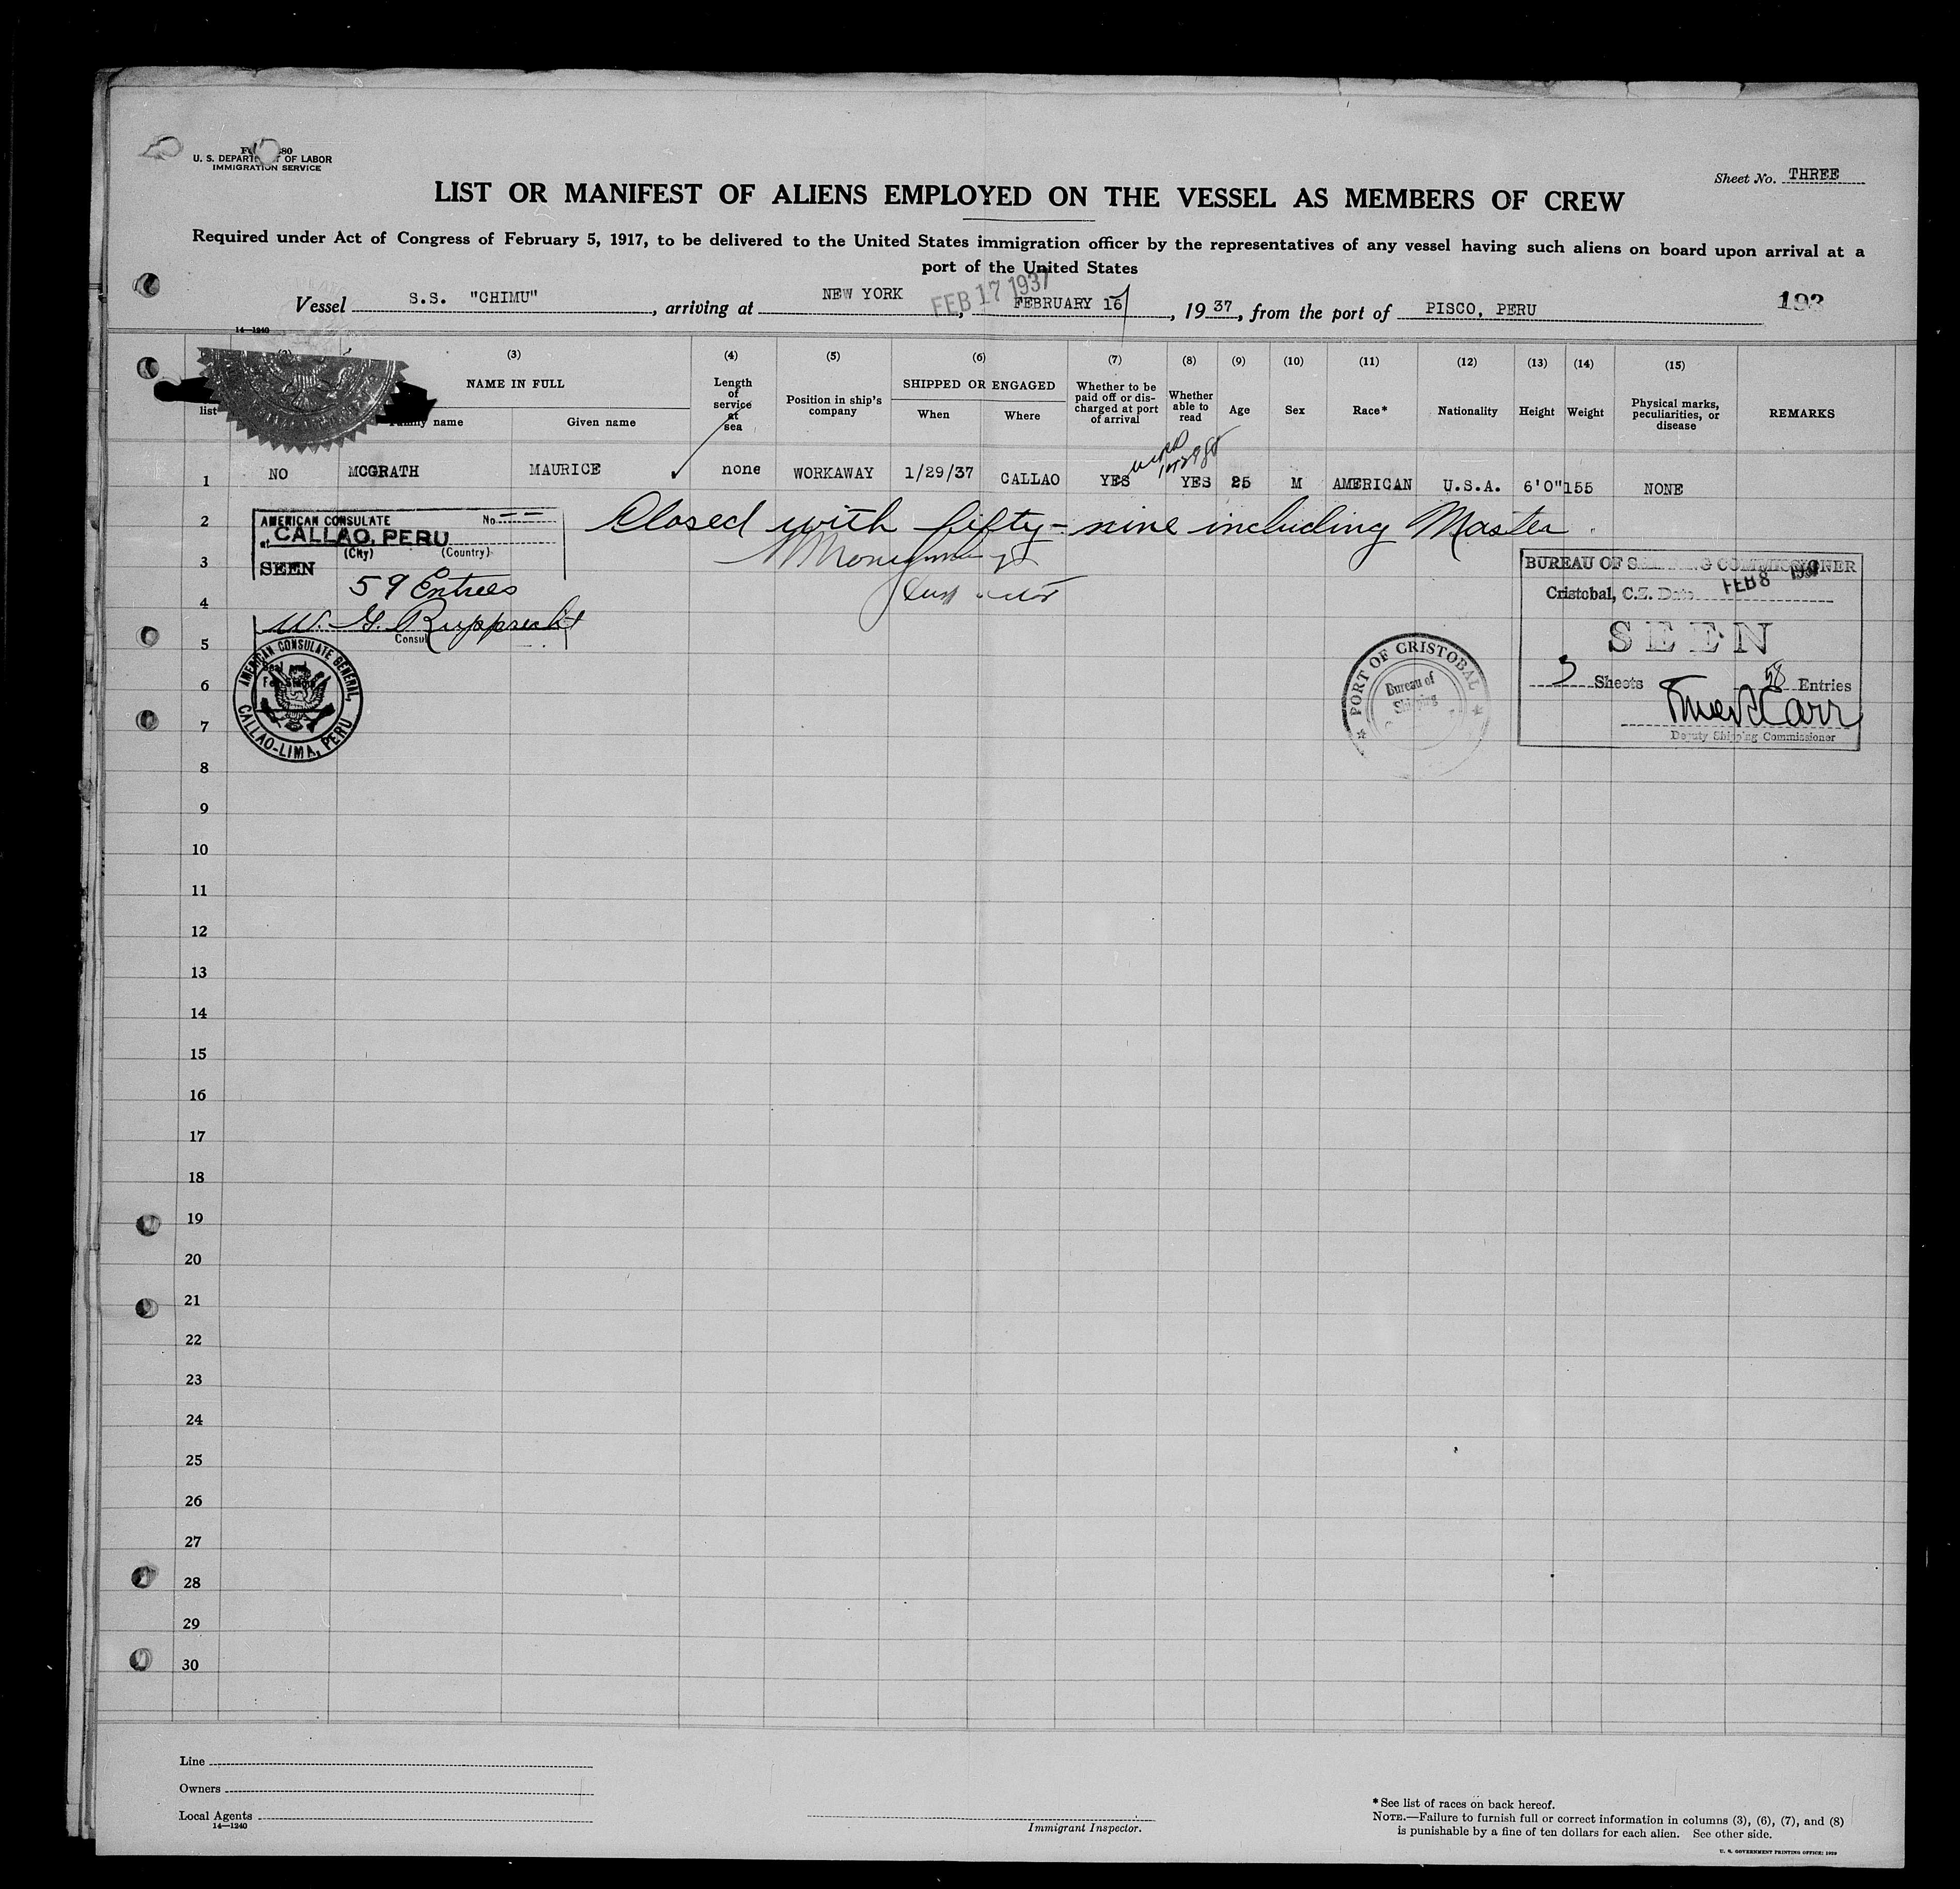 U. S. DEPARTMENT OF LABOR
IMMIGRATION SERVICE
Sheet No. THREE
LIST OR MANIFEST OF ALIENS EMPLOYED ON THE VESSEL AS MEMBERS OF CREW
Required under Act of Congress of February 5, 1917, to be delivered to the United States immigration officer by the representatives of any vessel having such aliens on board upon arrival at a
port of the United States
FEB 17 1937
Vessel S.S. "CHIMU", arriving at NEW YORK, FEBRUARY 16, 1937, from the port of PISCO, PERU
193
14—1240
(3) (4) (5) (6) (7) (8) (9) (10) (11) (12) (13) (14) (15)
list
NAME IN FULL
Family name Given name
Length of service at sea
Position in ship's company
SHIPPED OR ENGAGED
When Where
Whether to be paid off or discharged at port of arrival
Whether able to read
Age Sex Race* Nationality Height Weight
Physical marks, peculiarities, or disease
REMARKS
1 NO MCGRATH MAURICE none WORKAWAY 1/29/37 CALLAO YES YES 25 M AMERICAN U.S.A. 6'0" 155 NONE
2
Closed with fifty-nine including Master
AMERICAN CONSULATE No. --
at CALLAO, PERU
(City) (Country)
SEEN
59 Entrees
W. G. Rupprecht
Consul
AMERICAN CONSULATE GENERAL,
CALLAO-LIMA, PERU
BUREAU OF SHIPPING COMMISSIONER
Cristobal, C.Z. Date FEB 8 1937
SEEN
3 Sheets 58 Entries
Deputy Shipping Commissioner
PORT OF CRISTOBAL
Bureau of
Shipping
3
4
5
6
7
8
9
10
11
12
13
14
15
16
17
18
19
20
21
22
23
24
25
26
27
28
29
30
Line
Owners
Local Agents
14—1240
Immigrant Inspector.
*See list of races on back hereof.
NOTE.—Failure to furnish full or correct information in columns (3), (6), (7), and (8)
is punishable by a fine of ten dollars for each alien. See other side.
U. S. GOVERNMENT PRINTING OFFICE: 1929